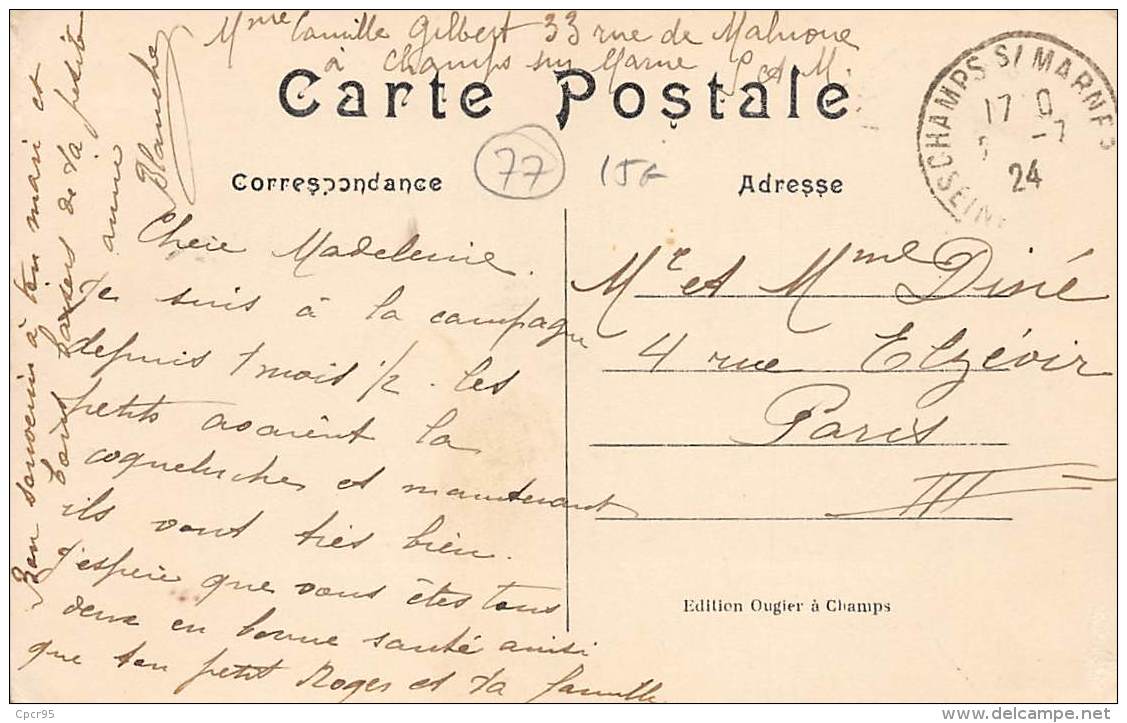 Mme Camille Gilbert 33 rue de Malnoue
à Champs sur Marne S et M.
Carte Postale
CHAMPS S/ MARNE
SEINE
17
-7
24
77
15F
Correspondance
Adresse
Chere Madeleine.
Je suis à la campagne
depuis 1 mois 1/2. les
petits avaient la
coqueluches et maintenant
ils vont tres bien.
j'espere que vous êtes tous
deux en bonne santé ainsi
que ton petit Roger et ta famille
Bon souvenir à ton mari et
bons baisers de ta petite
amie
Blanche
Mr et Mme Diné
4 rue Elzévir
Paris
III
Edition Ougier à Champs
Cpcr95
www.delcampe.net